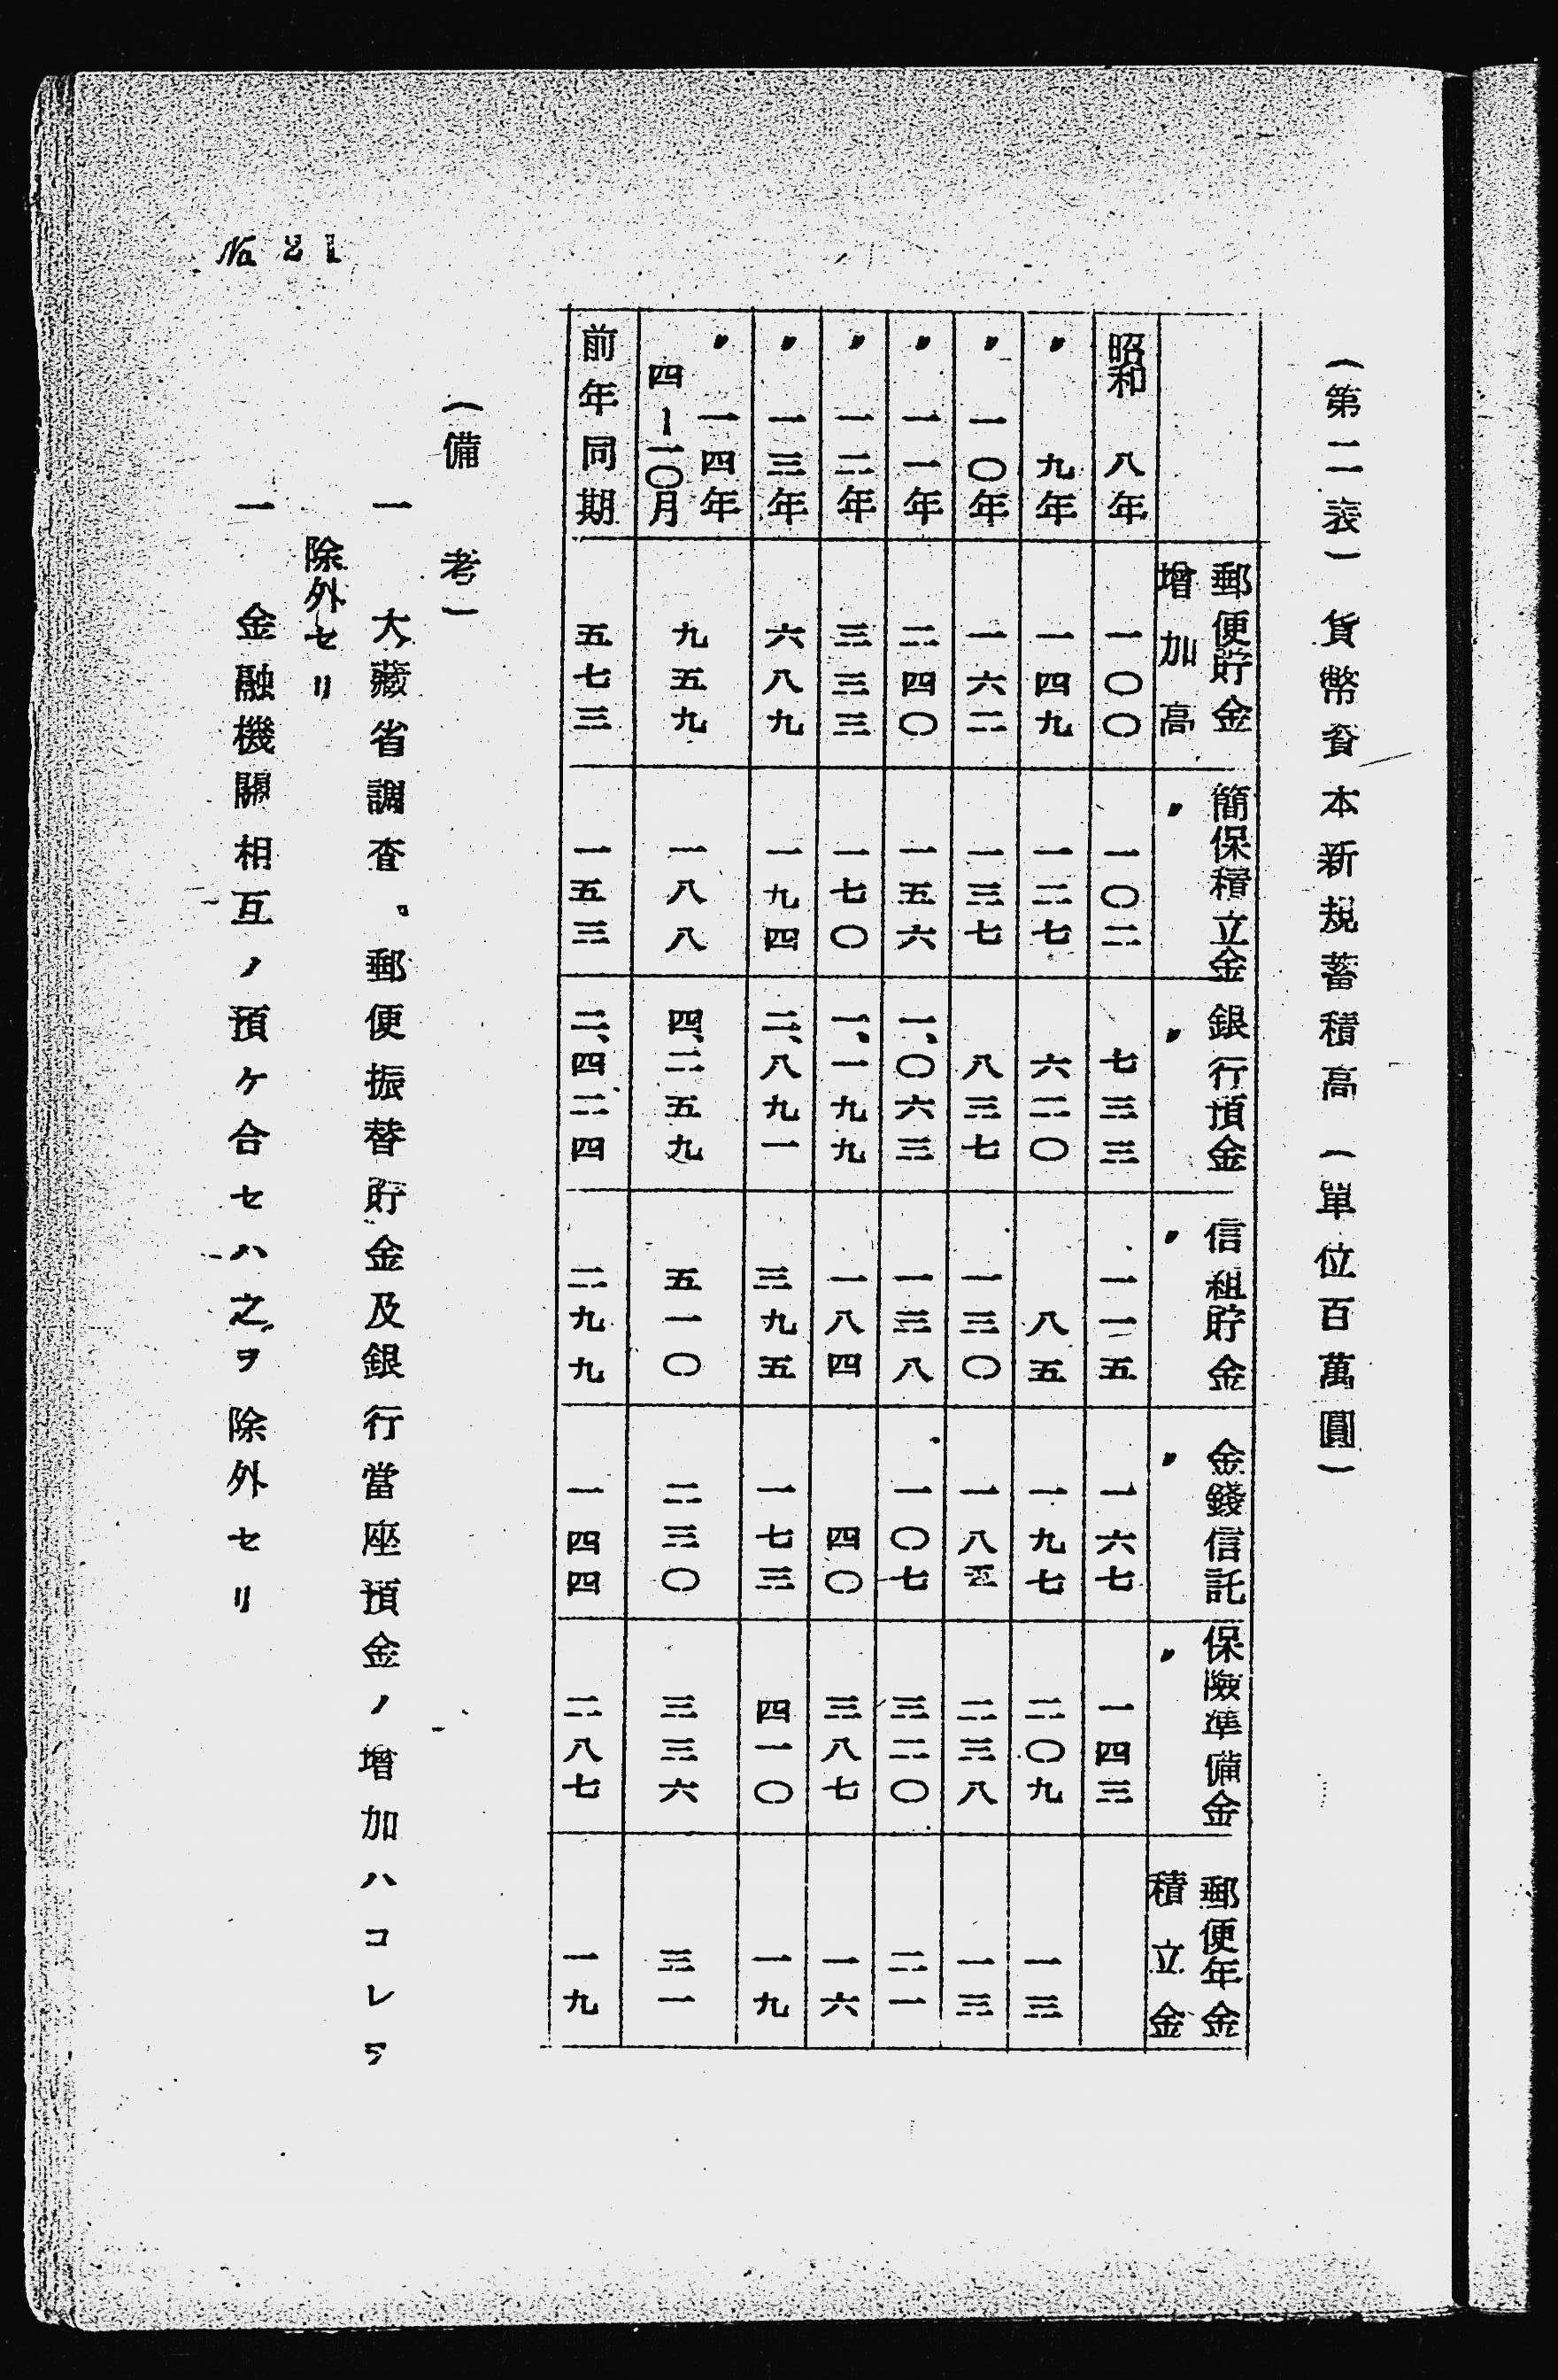 （第二表）貨幣資本新規蓄積高（單位百萬圓）
郵便貯金增加高　簡保積立金〃　銀行預金〃　信組貯金〃　金錢信託〃　保險準備金〃　郵便年金積立金
昭和八年　一〇〇　一〇二　七三三　一一五　一六七　一四三
〃九年　一四九　一二七　六二〇　八五　一九七　二〇九　一三
〃一〇年　一六二　一三七　八三七　一三〇　一八五　二三八　一三
〃一一年　二四〇　一五六　一、〇六三　一三八　一〇七　三二〇　二一
〃一二年　三三三　一七〇　一、一九九　一八四　四〇　三八七　一六
〃一三年　六八九　一九四　二、八九一　三九五　一七三　四一〇　一九
〃一四年四－一〇月　九五九　一八八　四、二五九　五一〇　二三〇　三三六　三一
前年同期　五七三　一五三　二、四二四　二九九　一四四　二八七　一九
（備考）
一　大藏省調査。郵便振替貯金及銀行當座預金ノ增加ハコレヲ
除外セリ
一　金融機關相互ノ預ケ合セハ之ヲ除外セリ
No 21